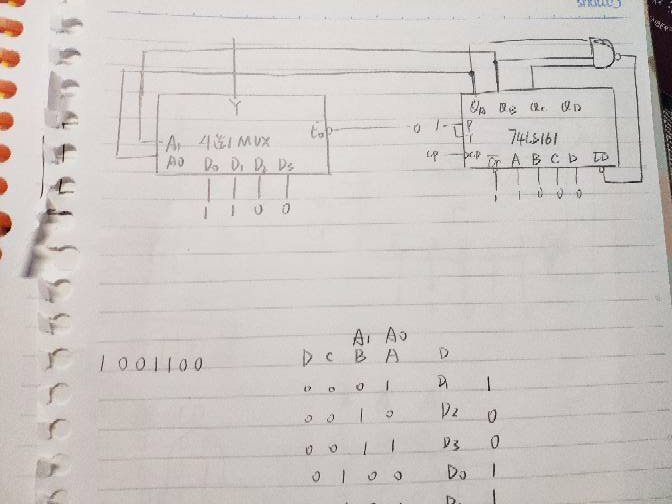 Campus
Y
4选1 MUX
A1
A0
D0 D1 D2 D3
1 1 0 0
0
QA QB QC QD
1
P
T
74LS161
CP
CP
Cr A B C D LD
1 1 0 0 0
1001100
A1 A0
D C B A D
0 0 0 1 D1 1
0 0 1 0 D2 0
0 0 1 1 D3 0
0 1 0 0 D0 1